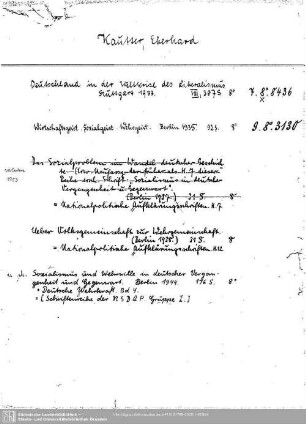 Kautter, Eberhard
Deutschland in der Weltkrise des Liberalismus
Stuttgart 1933. VIII, 387 S 8° 7.8°.8436
Wirtschaftsgeist. Sozialgeist. Wehrgeist. Berlin 1935. 92 S. 8° 9.8°.3130
Das Sozialproblem im Wandel deutscher Geschichte
Reihe ersch. Schrift: Sozialismus in deutscher
Vergangenheit u. Gegenwart".
(Berlin 1937.) 31 S. 8°
= Nationalpolitische Aufklärungsschriften. H. 7
Ueber Volksgemeinschaft zur Wehrgemeinschaft.
(Berlin 1938.) 31 S. 8°
= Nationalpolitische Aufklärungsschriften. H.12
Sozialismus und Wehrwille in deutscher Vergangenheit
und Gegenwart. Berlin 1944. 176 S. 8°
= Deutsche Wehrkraft. Bd 4.
= (Schriftenreihe der NSDAP. Gruppe I.)